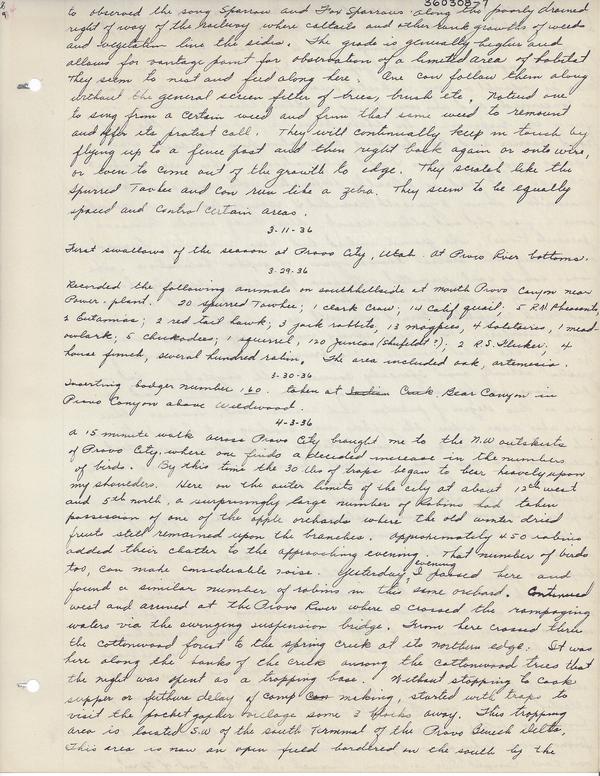 36030877
to observed the song Sparrow and Fox Sparrows along the poorly drained
right of way of the railway where cattails and other rank growths of weeds
and vegetation line the sides. The grade is generally higher and
allows for vantage point for observation of a limited area of habitat
They seem to nest and feed along here. One can follow them along
without the general screen filter of trees, brush etc. Noticed one
to sing from a certain weed and from that same weed to remount
and offer its protest call. They will continually keep in touch by
flying up to a fence post and then right back again or onto wire,
or even to come out of the growth to edge. They scratch like the
Spurred Towhee and can run like a zebra. They seem to be equally
spaced and control certain areas.
3-11-36
First swallows of the season at Provo City, Utah. At Provo River bottoms.
3-29-36
Recorded the following animals on south hillside at mouth Provo Canyon near
Power-plant. 20 spurred Towhee; 1 clark Crow; 14 Calif quail; 5 R.N. Pheasants,
2 red tail hawk; 3 jack rabbits, 13 magpies, 4 1 mead-
owlark; 5 chickadees; 1 squirrel, 120 juncos (shufeldt?); 2 R.S. flicker; 4
house finch, several hundred robin. The area included oak, artemesia.
3-30-36
Inserting badger number 160. taken at Indian Creek Bear Canyon in
Provo Canyon above Wildwood.
4-3-36
A 15 minute walk across Provo City brought me to the N.W outskirts
of Provo City where one finds a decided increase in the numbers
of birds. By this time the 30 lbs of traps began to bear heavely upon
my shoulders. Here on the outer limits of the city at about 12th west
and 5th north, a surprisingly large number of Robins had taken
possession of one of the apple orchards where the old winter dried
fruits still remained upon the branches. Approximately 450 robins
added their chatter to the approaching evening. That number of birds
too, can make considerable noise. Yesterday evening I passed here and
found a similar number of robins in this same orchard. Continued
west and arrived at the Provo River where I crossed the rampaging
waters via the swinging suspension bridge. From here crossed thru
the cottonwood forest to the spring creek at its northern edge. It was
here along the banks of the creek among the cottonwood trees that
the night was spent as a trapping base. Without stopping to cook
supper or futhure delay of camp can making, started with traps to
visit the pocket gopher village some 3 blocks away. This trapping
area is located S.W of the south Terminal of the Provo Bench Delta.
This area is now an open field bordered on the south by the